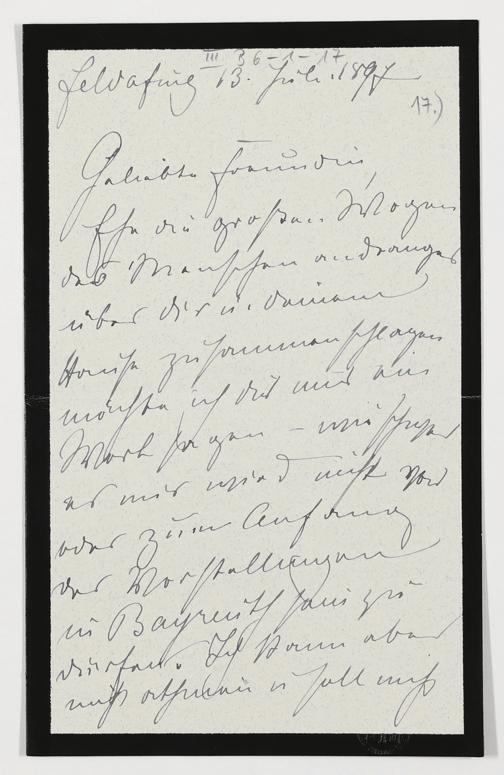 III B 6-1-17
Feldafing 13. Juli. 1897
17.)
Geliebte Freundin,
Ehe die großen Wogen
des Menschenandranges
über dir u. deinem
Hause zusammenschlagen
möchte ich dir nur ein
Wort sagen – wie schwer
es mir wird nicht vor
oder zum Anfang
der Vorstellungen
in Bayreuth sein zu
dürfen. Ich kann aber
nicht u soll nicht